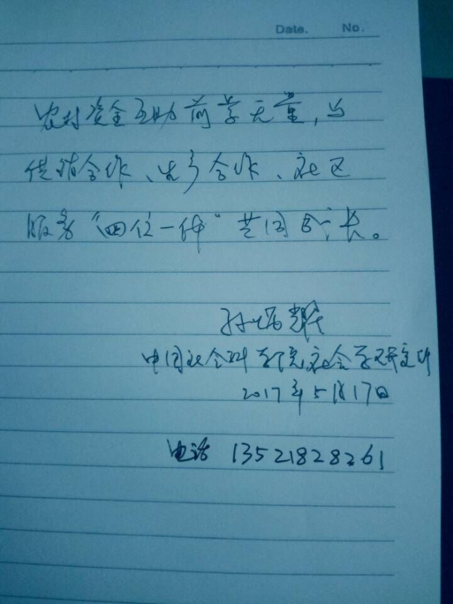 Date. No.
农村资金互助前景无量,与
供销合作、生产合作、社区
服务“四位一体”共同成长。
孙炳耀
中国社会科学院社会学研究所
2017年5月17日
电话 13521828261